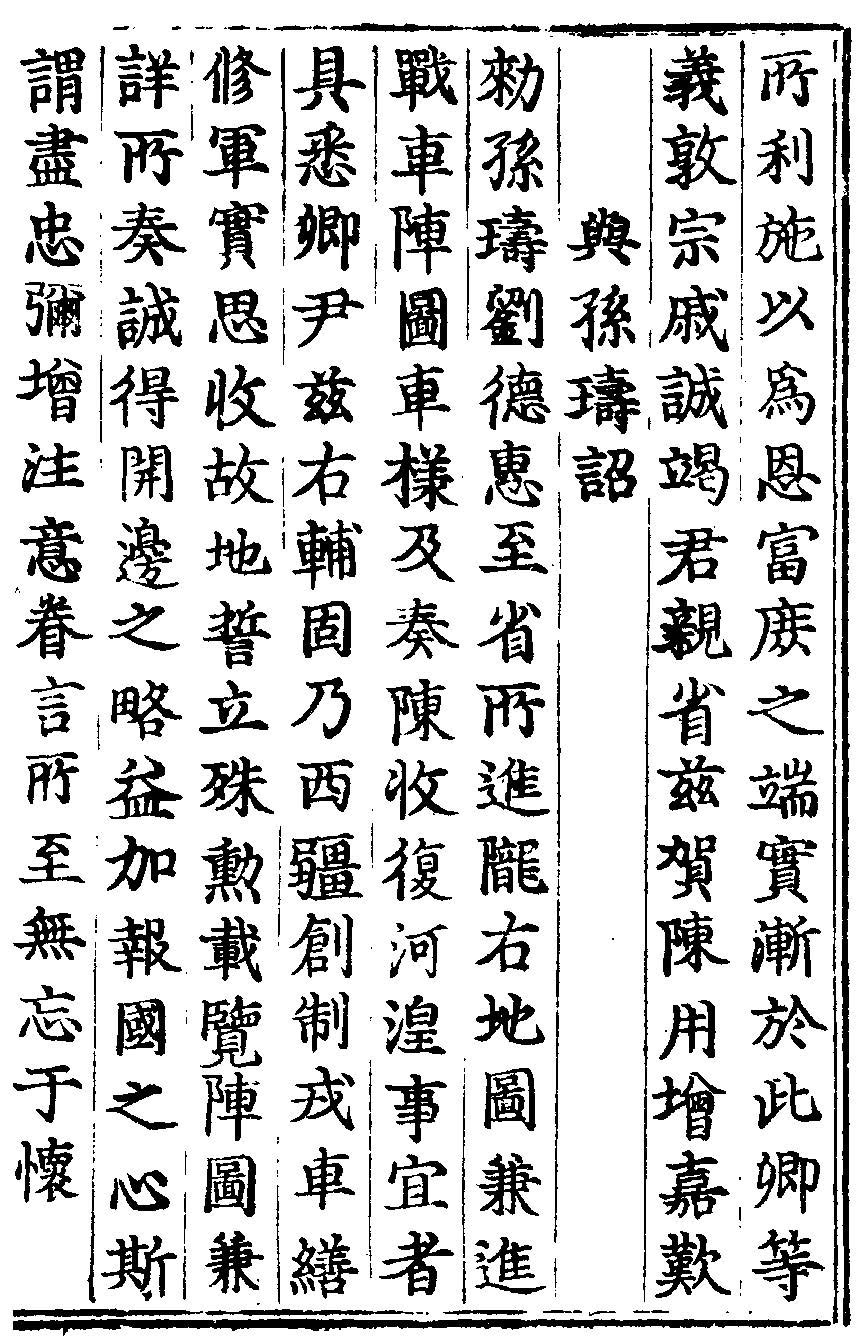 所利施以爲恩富庶之端實漸於此卿等
義敦宗戚誠竭君親省兹賀陳用增嘉歎
與孫璹詔
勑孫璹劉德惠至省所進隴右地圖兼進
戰車陣圖車様及奏陳收復河湟事宜者
具悉卿尹兹右輔固乃西疆創制戎車繕
修軍實思收故地誓立殊勲載覽陣圖兼
詳所奏誠得開邊之略益加報國之心斯
謂盡忠彌增注意眷言所至無忘于懷